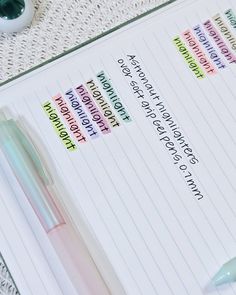 highlight
highlight
highlight
highlight
highlight
Astronaut highlighters
over soft grip gel pens, 0.7mm
highlight
highlight
highlight
highlight
highlight